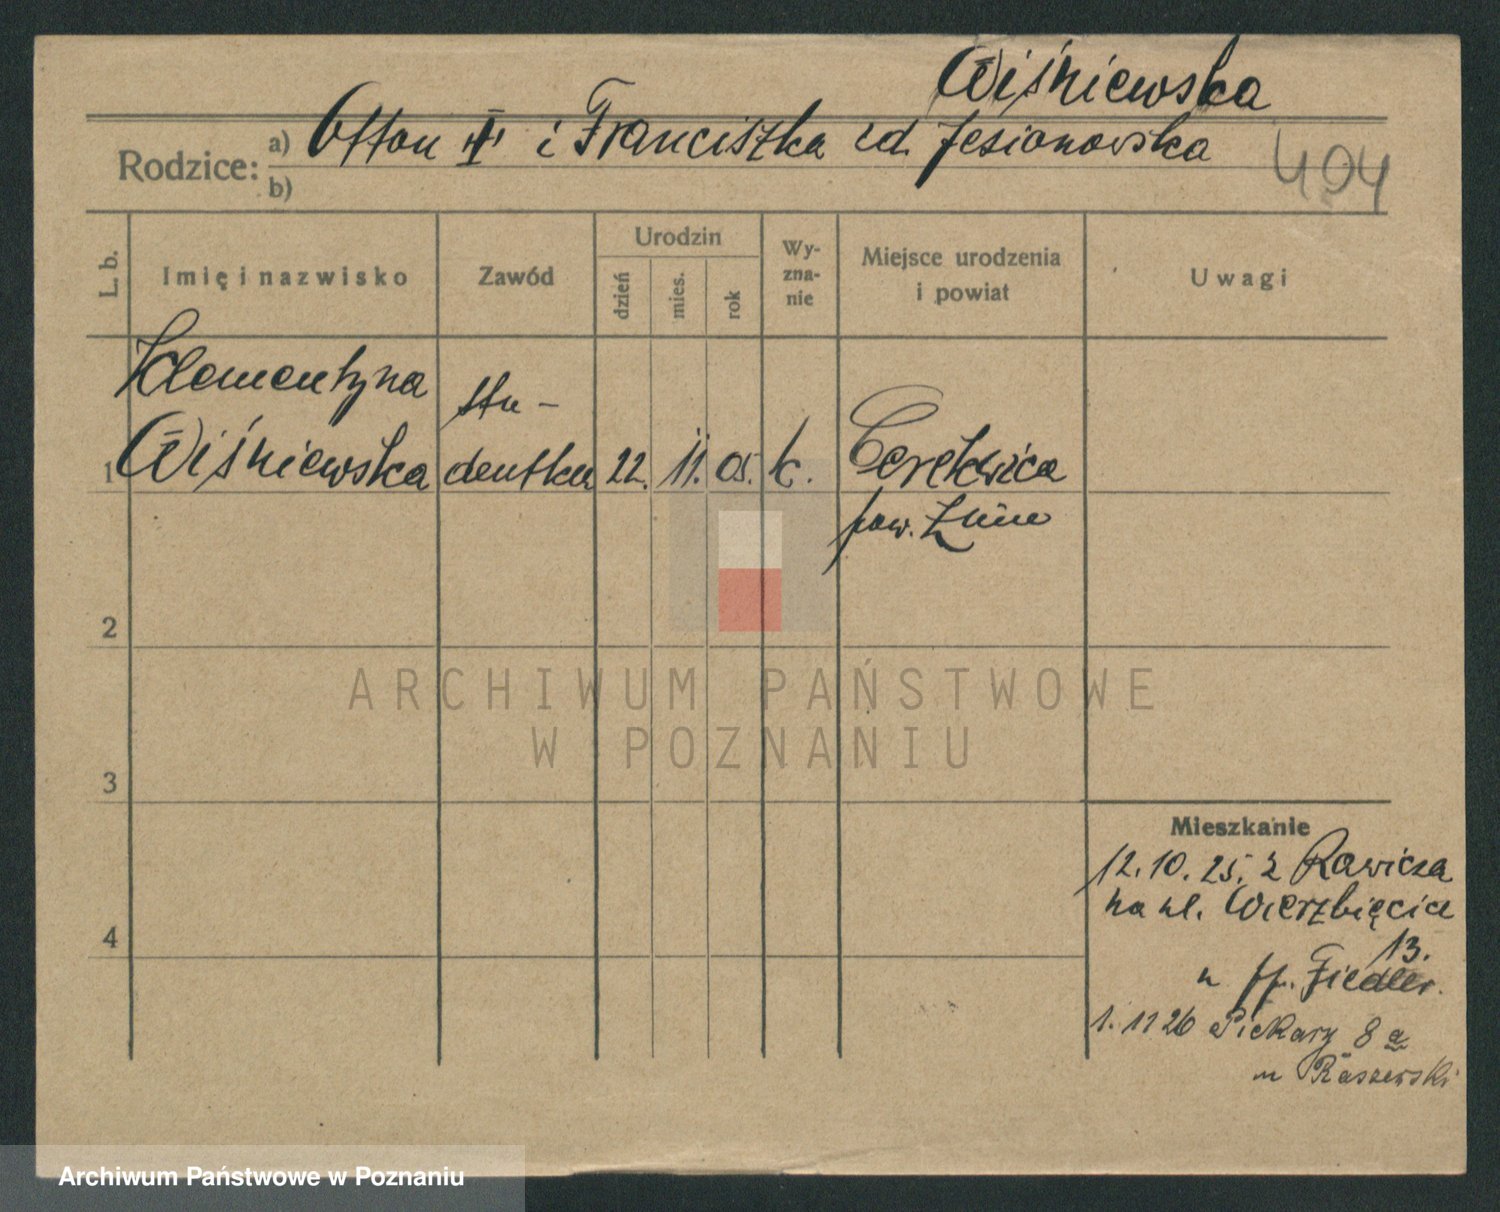 Wiśniewska
Rodzice: a) Otton † i Franciszka zd. Jesionowska
b)
494
L. b.
Imię i nazwisko
Zawód
Urodzin
dzień
mies.
rok
Wy-
zna-
nie
Miejsce urodzenia
i powiat
Uwagi
Klementyna
stu-
1 Wiśniewska dentka 22. 11. 05. k. Cerekwica
pow. Żnin
2
3
4
Mieszkanie
12.10.25. z Rawicza
na ul. Wierzbięcia
13.
u pp. Fiedler.
1. 11 26 Piekary 8 a
u Raszewski
ARCHIWUM PAŃSTWOWE
W POZNANIU
Archiwum Państwowe w Poznaniu